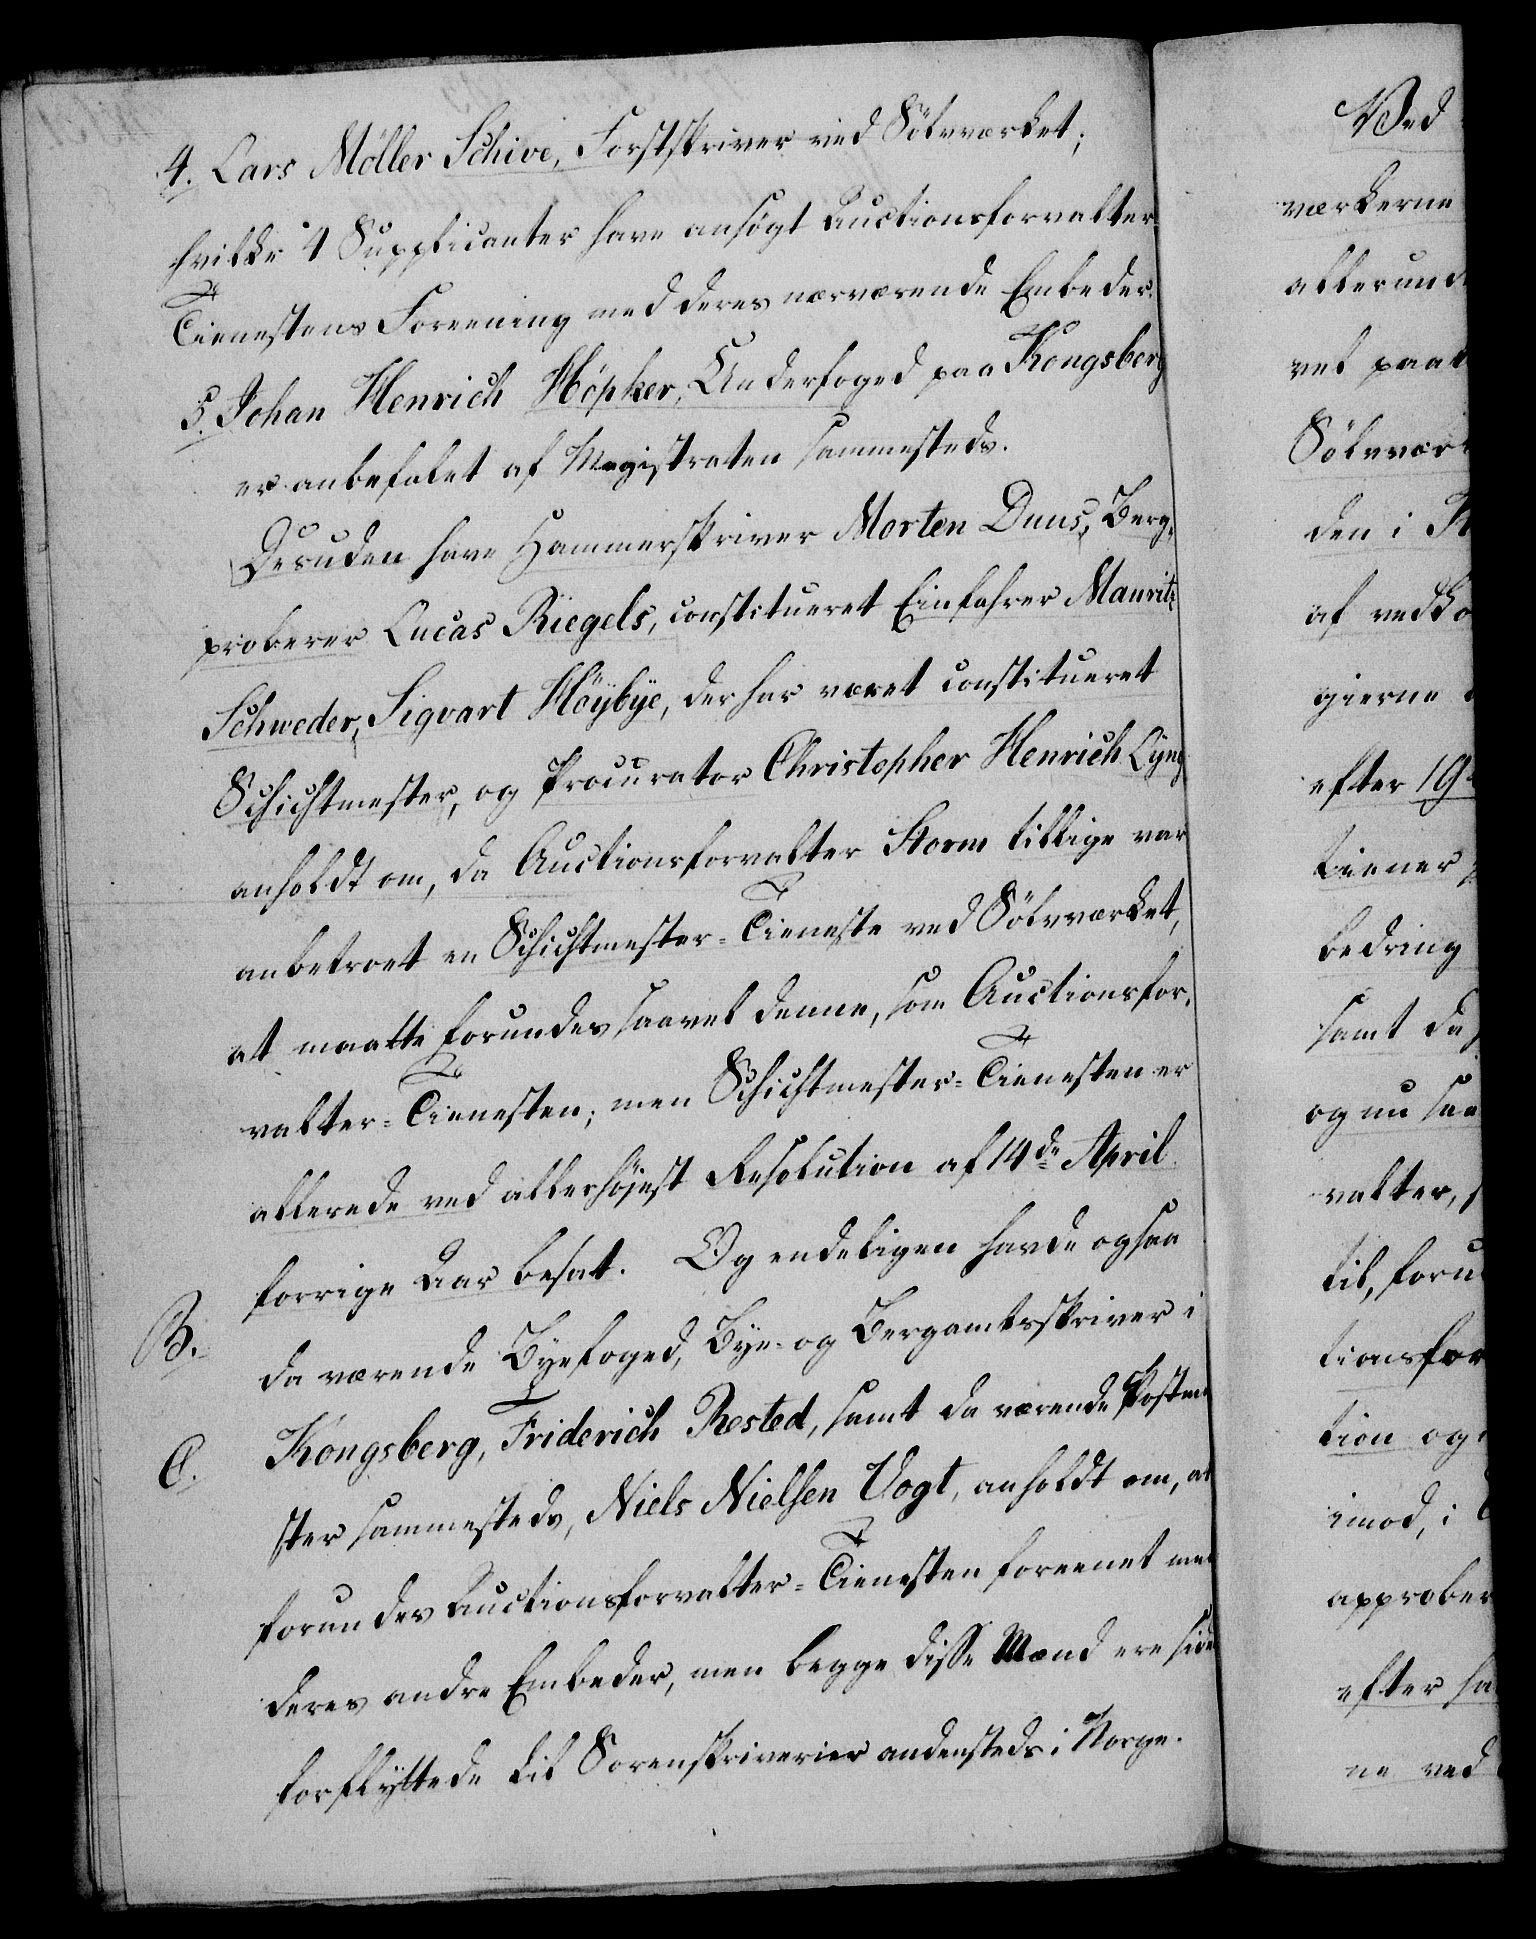 4. Lars Möller Schive, Forstskriver ved Sölvværket;
hvilke 4 Supplicanter have ansögt Auctionsforvalter-
Tienestens Foreening med deres nærværende Embeder.
5. Johan Henrich Höpker, Underfoged paa Kongsberg
er anbefalet af Magistraten sammesteds.
Desuden have Hammerskriver Morten Duus, Berg-
proberer Lucas Riegels, constitueret Einfahrer Mauritz
Schweder, Sigvart Höÿbÿe, der har været constitueret
Schichtmester, og Procurator Christopher Henrich Lÿng
anholdt om, da Auctionsforvalter Storm tillige var
anbetroet en Schichtmester-Tieneste ved Sölvværket,
at maatte forundes saavel denne, som Auctionsfor-
valter-Tienesten; men Schichtmester-Tienesten er
allerede ved allerhöjest Resolution af 14de April
forrige Aar besat. Og endeligen havde ogsaa
B. da værende Bÿefoged, Bÿe- og Bergamtsskriver i
Kongsberg, Friderich Rested, samt da værende Postme
C. ster sammesteds, Niels Nielsen Vogt, anholdt om, at
forundes Auctionsforvalter-Tienesten foreenet med
deres andre Embeder, men begge disse Mænd ere siden
forflÿttede til Sorenskriverier andensteds i Norge.
Ved
værkerne
allerund
vel paat
Sölvvær
den i
af vedko
gierne
efter 19
tiener
bedring
samt da
og nu saa
valter,
til, foru
tionsfor
tion og
imod, i
approber
efter sa
ne ved